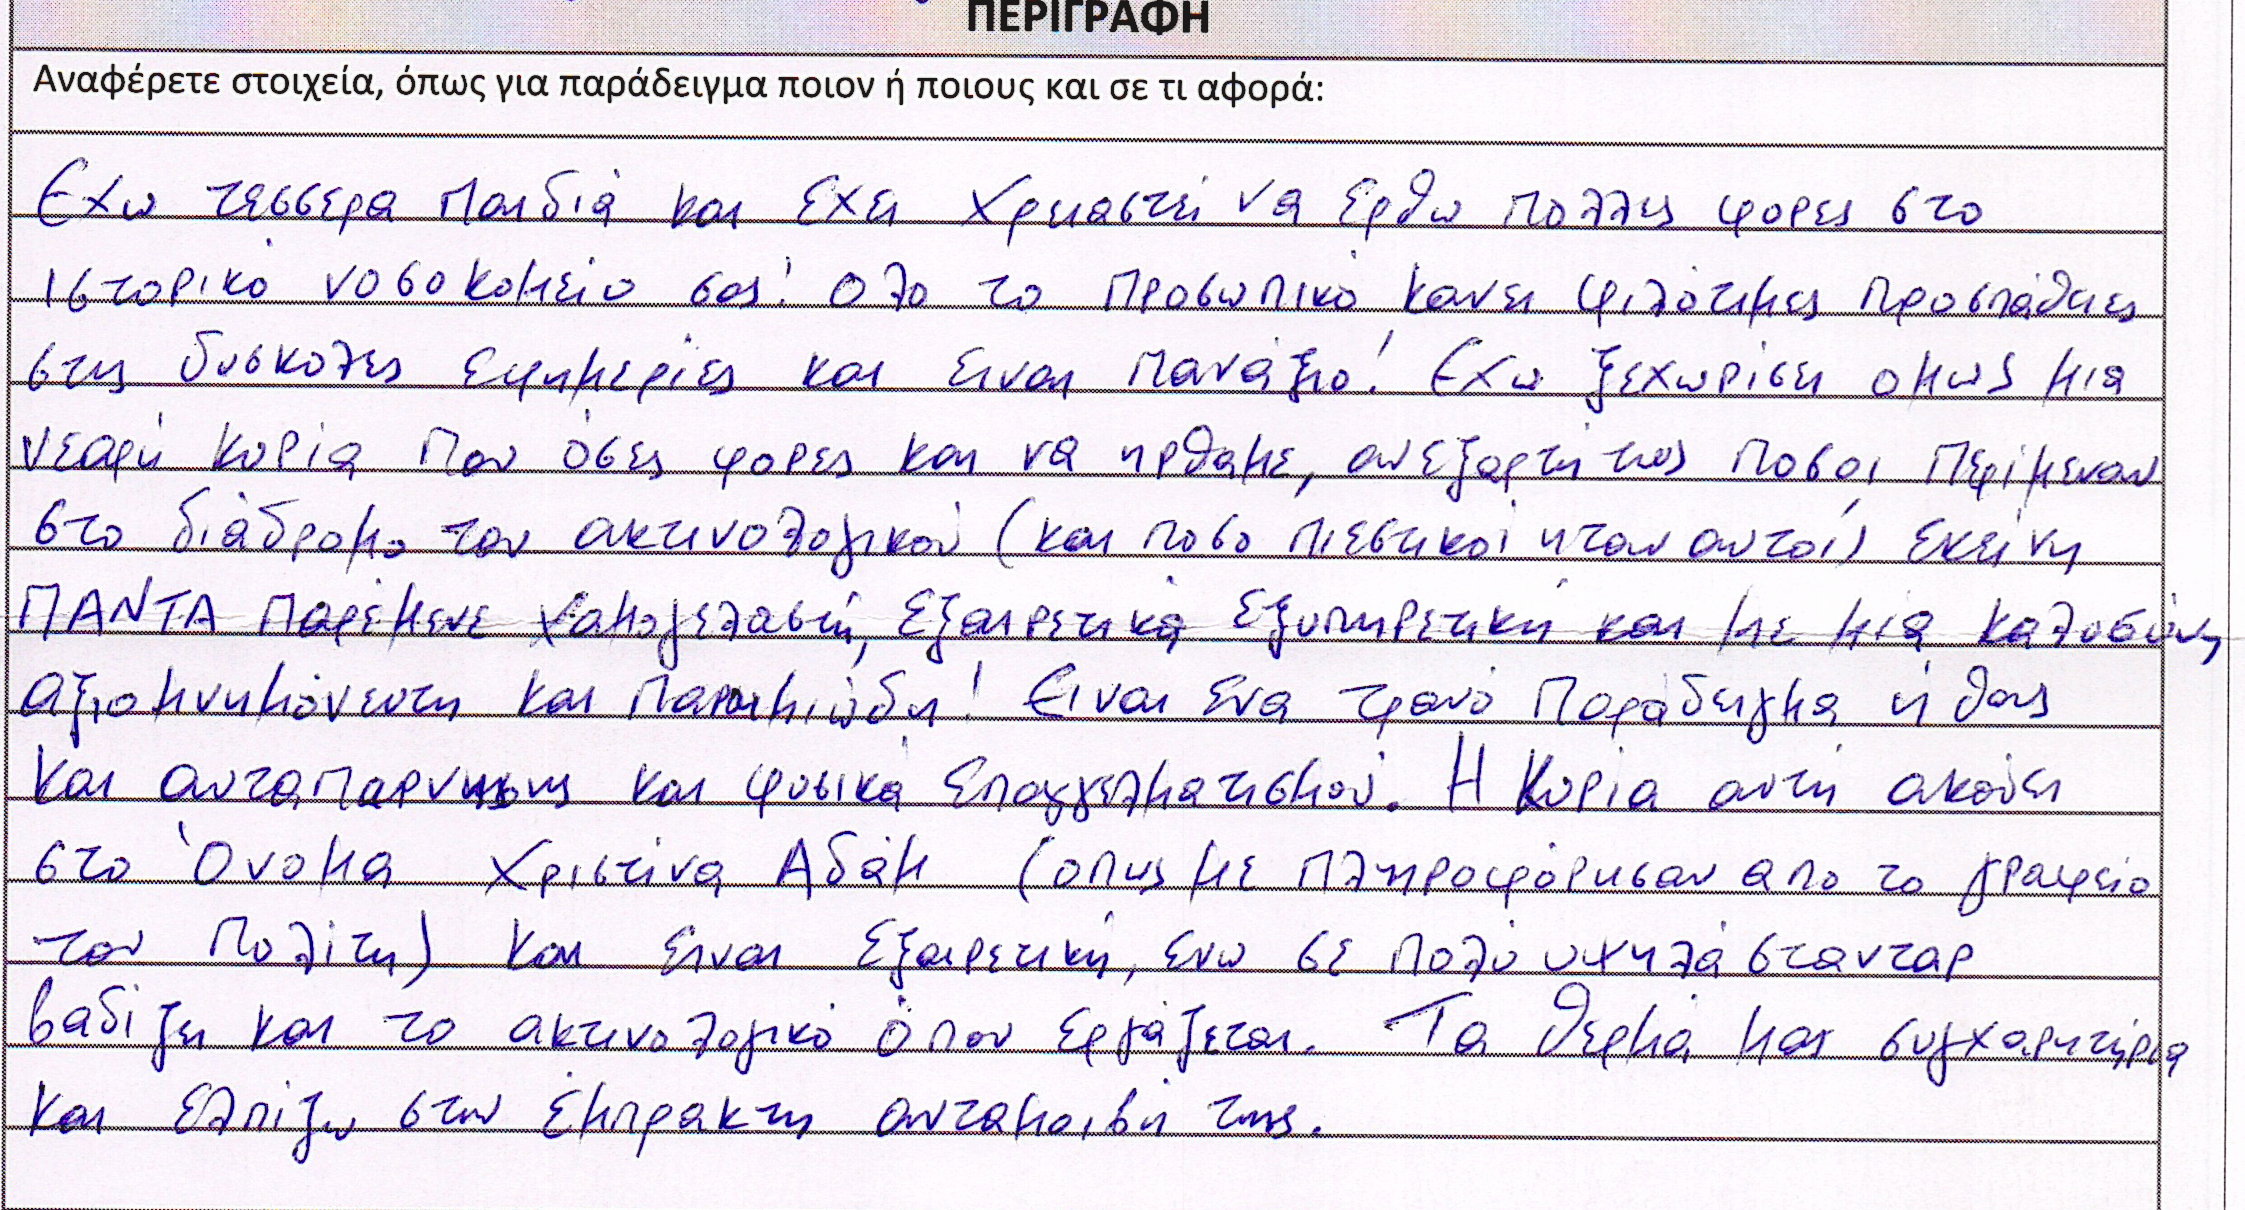 ΠΕΡΙΓΡΑΦΗ
Αναφέρετε στοιχεία, όπως για παράδειγμα ποιον ή ποιους και σε τι αφορά:
Εχω τεσσερα παιδιά και εχει χρειαστεί να ερθω πολλες φορες στο
ιστορικό νοσοκομείο σας! Ολο το προσωπικό κανει φιλότιμες προσπάθειες
στις δυσκολες εφημερίες και ειναι πανάξιο! Εχω ξεχωρίσει ομως μια
νεαρή κυρία που όσες φορες και να ηρθαμε, ανεξαρτήτως ποσοι περίμεναν
στο διάδρομο του ακτινολογικού (και ποσο πιεστικοί ηταν αυτοί) εκείνη
ΠΑΝΤΑ παρέμενε χαμογελαστή, εξαιρετικά εξυπηρετική και με μια καλοσύνη
αξιομνημόνευτη και παροιμιώδη! Ειναι ενα τρανό παράδειγμα ήθους
και αυταπαρνησης και φυσικά επαγγελματισμού. Η Κυρία αυτή ακούει
στο Όνομα Χριστίνα Αδάμ (οπως με πληροφόρησαν απο το γραφείο
του Πολίτη) και ειναι εξαιρετική, ενω σε πολύ υψηλά σταντάρ
βαδίζει και το ακτινολογικό όπου εργάζεται. Τα θερμά μας συγχαρητήρια
και ελπίζω στην έμπρακτη ανταμοιβή της.